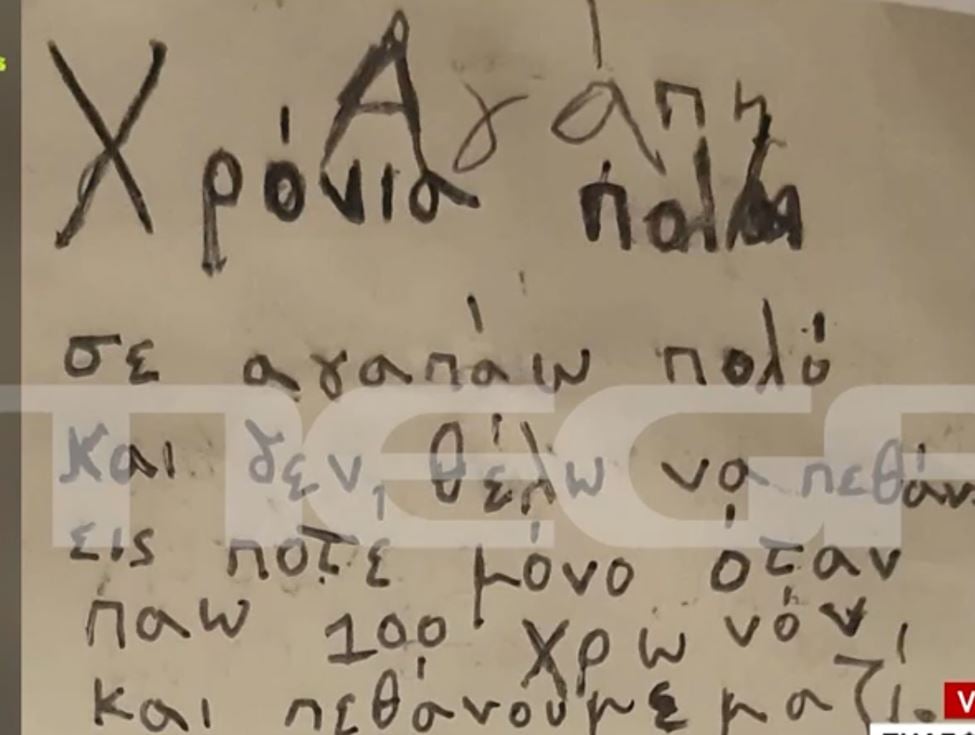 Αγάπη
Χρόνια πολλά
σε αγαπάω πολύ
και δεν, θέλω να πεθάν
εις ποτέ μόνο όταν
παω 100 χρω νόν,
και πεθάνουμε μαζί.
MEGA
V